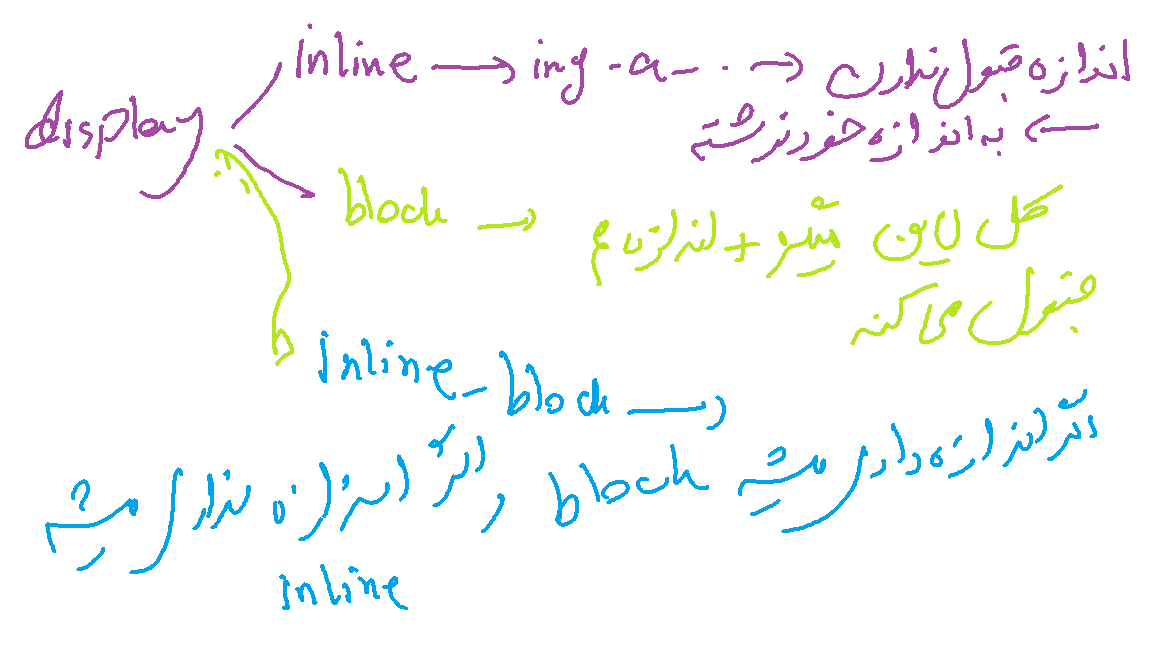 display
inline → img - a - .. → اندازه قبول ندارن
← به اندازه خود نوشته
block → کل لاین میگیره + اندازه هم
قبول می کنه
inline_block →
اگر اندازه دادی میشه block , اگر اندازه نداری میشه
inline